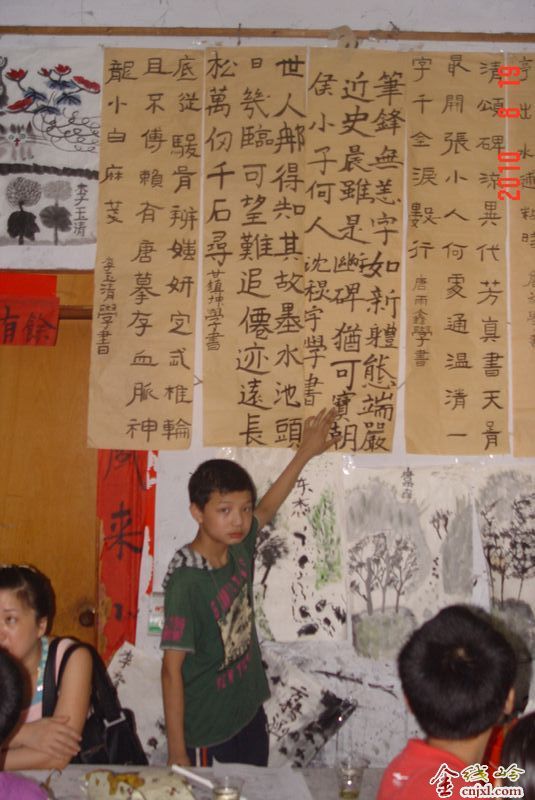 亭出水通
清頌碑流異代芳真書天骨
最開張小人何處通溫清一
字千金淚數行 唐雨鑫學書
筆鋒無恙字如新體態端嚴
近史晨雖是斷碑猶可寶朝
侯小子何人 沈稷宇學書
世人那得知其故墨水池頭
日幾臨可望難追僊迹遠長
松萬仞千石尋
學書
底從騣骨辨媸妍定武椎輪
且不傅賴有唐摹存血脈神
龍小白麻箋 李玉清學書
李玉清
有餘
風来
2010 8 19
金线岭
cnjxl.com